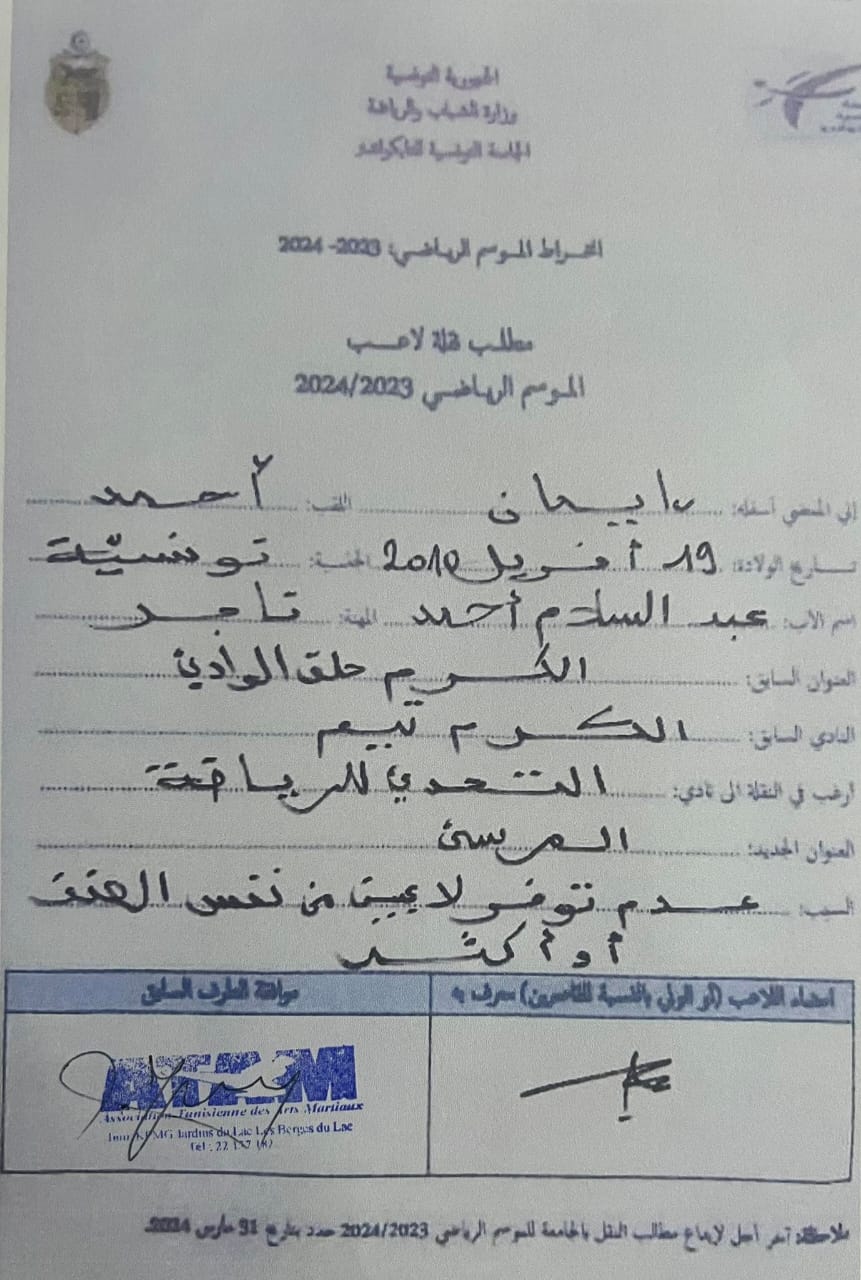 الجمهورية التونسية
وزارة الشباب والرياضة
الجامعة التونسية للتايكواندو
انخراط الموسم الرياضي: 2023- 2024
مطلب نقلة لاعب
الموسم الرياضي 2024/2023
إني الممضي أسفله: ناييمان اللقب: أحمد
تاريخ الولادة: 19 أفريل 2010 الجنسية: تونسيّة
اسم الأب: عبد السلام أحمد المهنة: تاجر
العنوان السابق: الكريم حلق الوادي
النادي السابق: الكرم تيم
أرغب في النقلة الى نادي: التحدي للرياضة
العنوان الجديد: المرسى
السبب: عدم توفر لاعبين من نفس الصنف
أو أكثر
امضاء اللاعب (أو الولي بالنسبة للقاصرين) معرف به
موافقة الطرف السابق
ATAM
Association Tunisienne des Arts Martiaux
Imm KPMG Jardins du Lac Les Berges du Lac
Tel : 22
ملاحظة: آخر أجل لإيداع مطالب النقل بالجامعة للموسم الرياضي 2024/2023 حدد بتاريخ 31 مارس 2024.